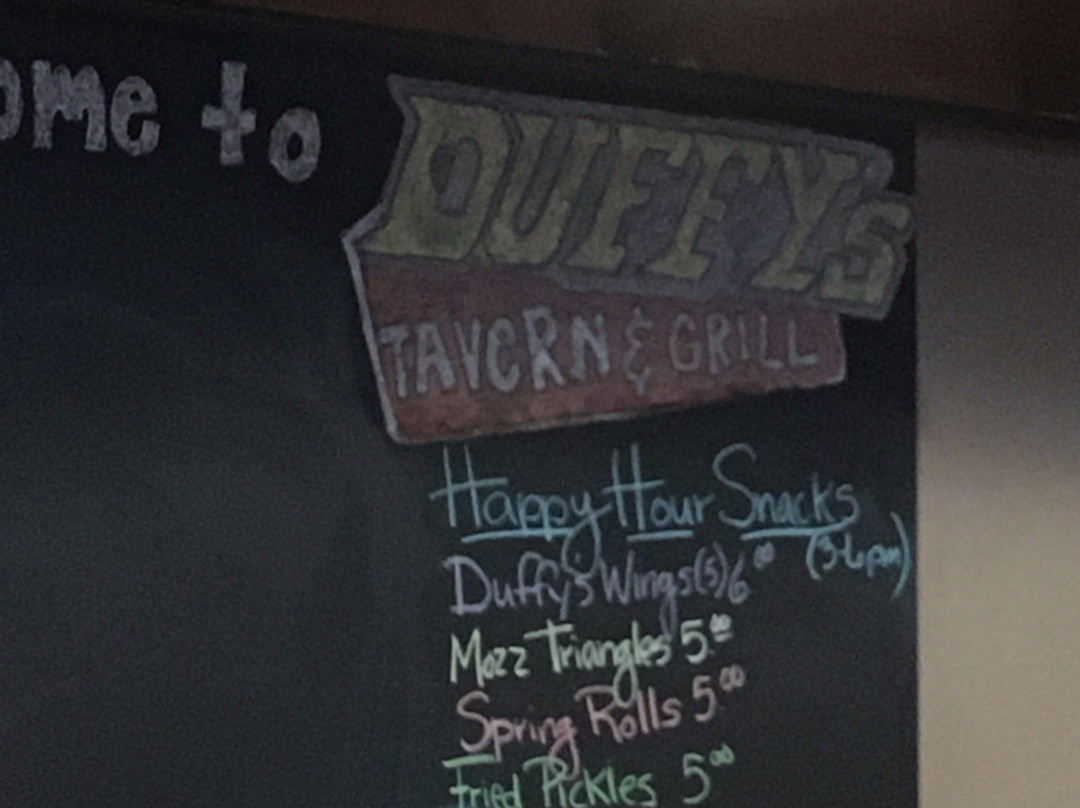 ome to
DUFFY's
TAVERN & GRILL
Happy Hour Snacks
(3-6pm)
Duffy's Wings(5) 6.00
Mozz Triangles 5.00
Spring Rolls 5.00
Fried Pickles 5.00